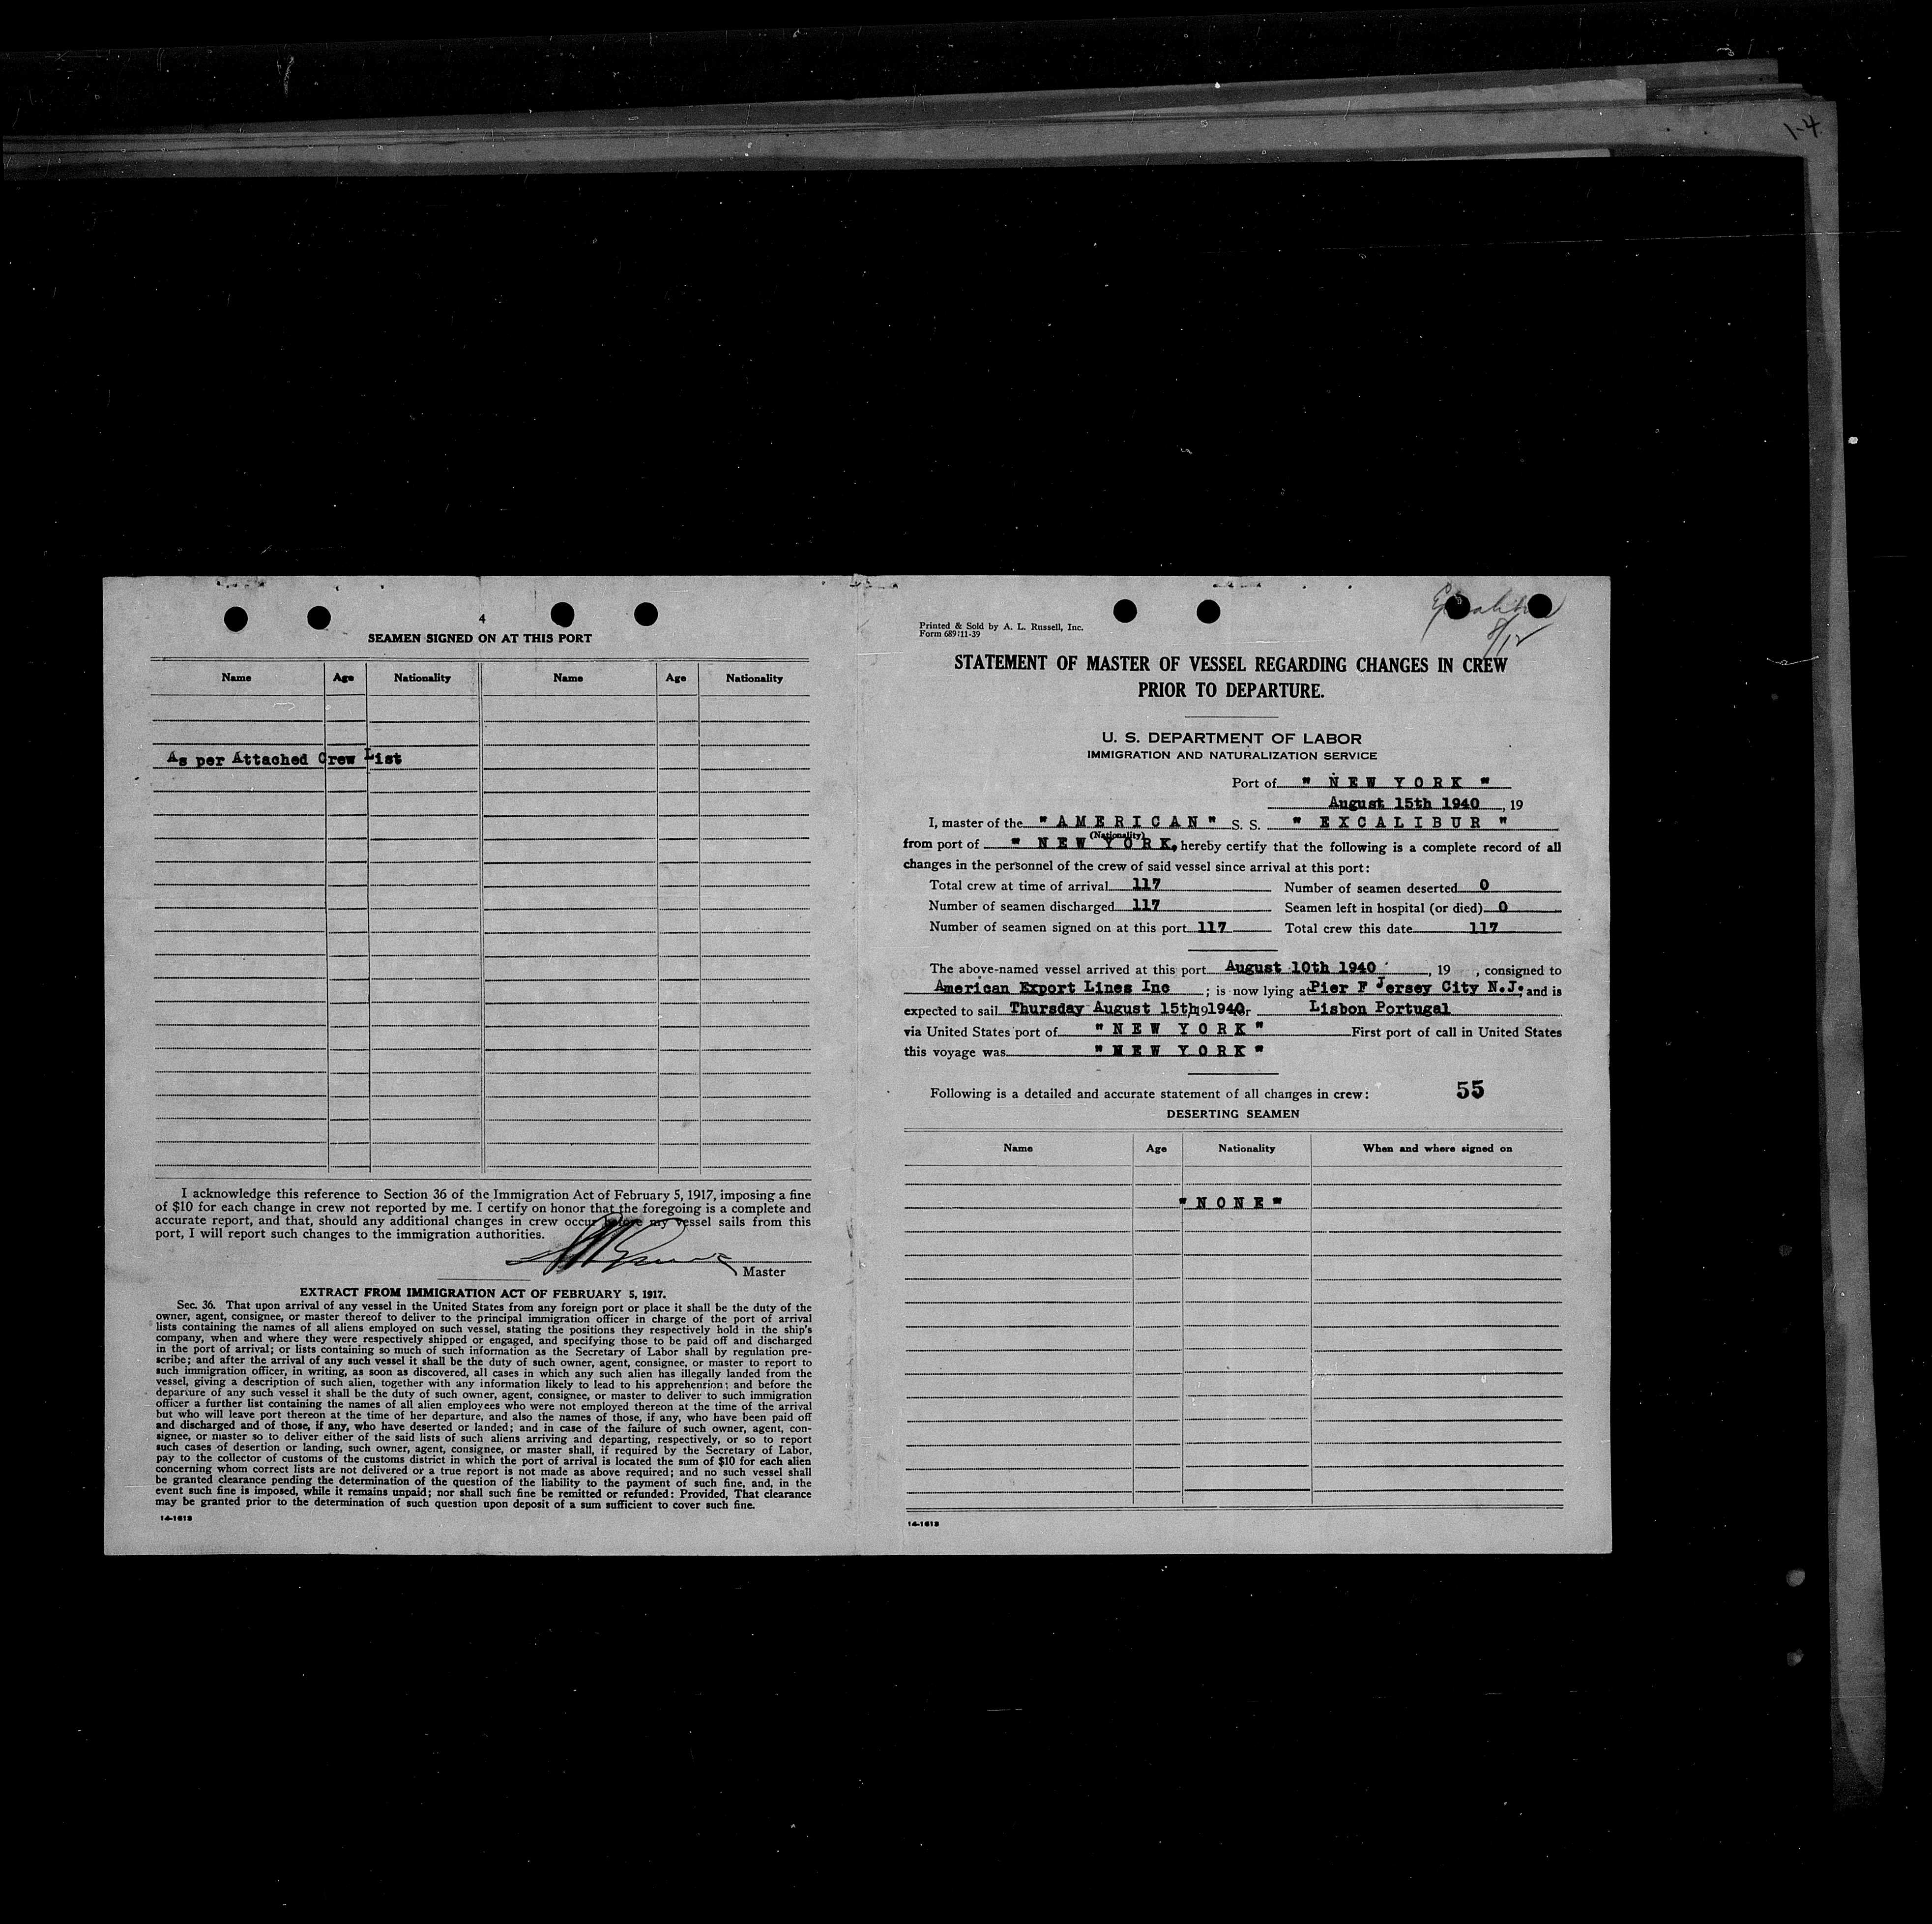 1-4
4
SEAMEN SIGNED ON AT THIS PORT
Name Age Nationality Name Age Nationality
As per Attached Crew List
I acknowledge this reference to Section 36 of the Immigration Act of February 5, 1917, imposing a fine
of $10 for each change in crew not reported by me. I certify on honor that the foregoing is a complete and
accurate report, and that, should any additional changes in crew occur before my vessel sails from this
port, I will report such changes to the immigration authorities.
Master
EXTRACT FROM IMMIGRATION ACT OF FEBRUARY 5, 1917.
Sec. 36. That upon arrival of any vessel in the United States from any foreign port or place it shall be the duty of the
owner, agent, consignee, or master thereof to deliver to the principal immigration officer in charge of the port of arrival
lists containing the names of all aliens employed on such vessel, stating the positions they respectively hold in the ship's
company, when and where they were respectively shipped or engaged, and specifying those to be paid off and discharged
in the port of arrival; or lists containing so much of such information as the Secretary of Labor shall by regulation pre-
scribe; and after the arrival of any such vessel it shall be the duty of such owner, agent, consignee, or master to report to
such immigration officer, in writing, as soon as discovered, all cases in which any such alien has illegally landed from the
vessel, giving a description of such alien, together with any information likely to lead to his apprehension; and before the
departure of any such vessel it shall be the duty of such owner, agent, consignee, or master to deliver to such immigration
officer a further list containing the names of all alien employees who were not employed thereon at the time of the arrival
but who will leave port thereon at the time of her departure, and also the names of those, if any, who have been paid off
and discharged and of those, if any, who have deserted or landed; and in case of the failure of such owner, agent, con-
signee, or master so to deliver either of the said lists of such aliens arriving and departing, respectively, or so to report
such cases of desertion or landing, such owner, agent, consignee, or master shall, if required by the Secretary of Labor,
pay to the collector of customs of the customs district in which the port of arrival is located the sum of $10 for each alien
concerning whom correct lists are not delivered or a true report is not made as above required; and no such vessel shall
be granted clearance pending the determination of the question of the liability to the payment of such fine, and, in the
event such fine is imposed, while it remains unpaid; nor shall such fine be remitted or refunded: Provided, That clearance
may be granted prior to the determination of such question upon deposit of a sum sufficient to cover such fine.
14-1613
Excalibur
8/12
Printed & Sold by A. L. Russell, Inc.
Form 689:11-39
STATEMENT OF MASTER OF VESSEL REGARDING CHANGES IN CREW
PRIOR TO DEPARTURE.
U. S. DEPARTMENT OF LABOR
IMMIGRATION AND NATURALIZATION SERVICE
Port of " N E W Y O R K "
August 15th 1940, 19
I, master of the " A M E R I C A N " S. S. " E X C A L I B U R "
(Nationality)
from port of " N E W Y O R K, hereby certify that the following is a complete record of all
changes in the personnel of the crew of said vessel since arrival at this port:
Total crew at time of arrival 117 Number of seamen deserted 0
Number of seamen discharged 117 Seamen left in hospital (or died) 0
Number of seamen signed on at this port 117 Total crew this date 117
The above-named vessel arrived at this port August 10th 1940, 19 , consigned to
American Export Lines Inc ; is now lying at Pier F Jersey City N.J. and is
expected to sail Thursday August 15th, 19 1940 for Lisbon Portugal
via United States port of " N E W Y O R K " First port of call in United States
this voyage was " N E W Y O R K "
Following is a detailed and accurate statement of all changes in crew: 55
DESERTING SEAMEN
Name Age Nationality When and where signed on
" N O N E "
14-1613